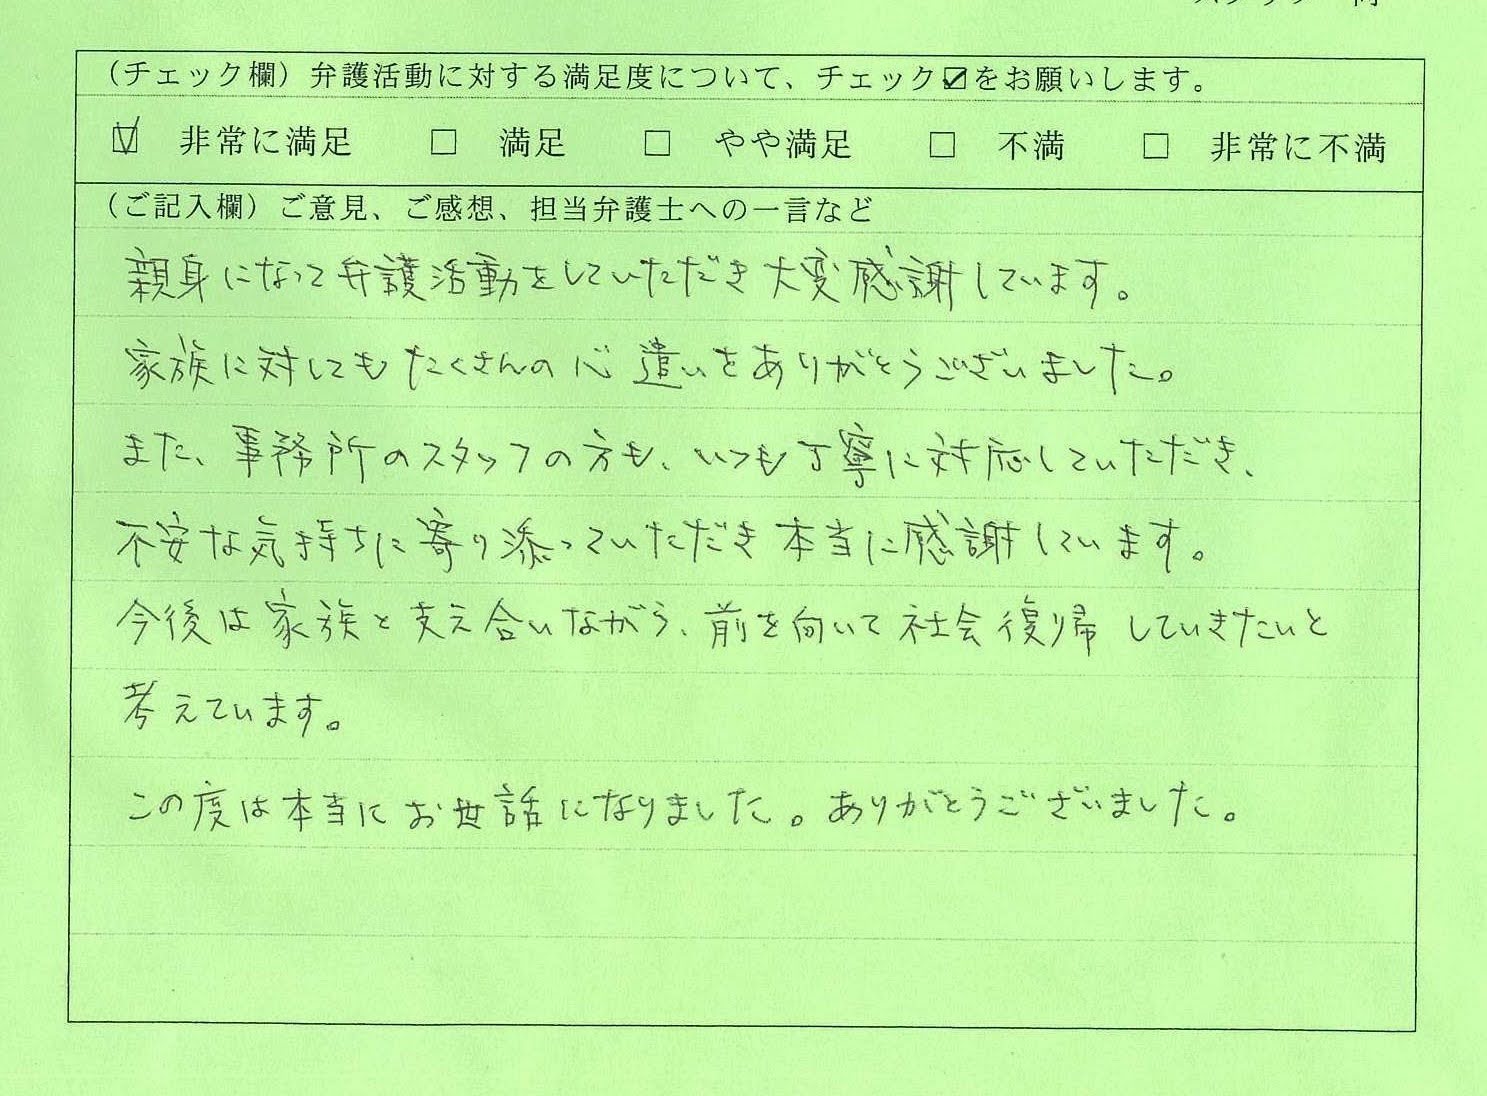 （チェック欄）弁護活動に対する満足度について、チェック☑をお願いします。
☑ 非常に満足 □ 満足 □ やや満足 □ 不満 □ 非常に不満
（ご記入欄）ご意見、ご感想、担当弁護士への一言など
親身になって弁護活動をしていただき大変感謝しています。
家族に対してもたくさんの心遣いをありがとうございました。
また、事務所のスタッフの方も、いつも丁寧に対応していただき、
不安な気持ちに寄り添っていただき本当に感謝しています。
今後は家族と支え合いながら、前を向いて社会復帰していきたいと
考えています。
この度は本当にお世話になりました。ありがとうございました。